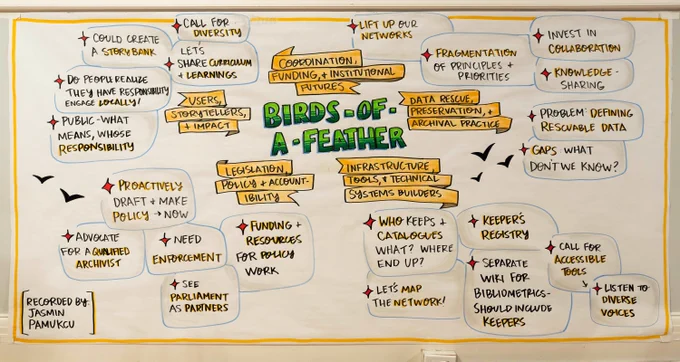 COULD CREATE
A STORYBANK
CALL FOR
DIVERSITY
LETS
SHARE CURRICULUM
+ LEARNINGS
DO PEOPLE REALIZE
THEY HAVE RESPONSIBILITY
ENGAGE LOCALLY!
PUBLIC-WHAT
MEANS, WHOSE
RESPONSIBILITY
USERS,
STORYTELLERS,
+ IMPACT
LIFT UP OUR
NETWORKS
COORDINATION,
FUNDING, + INSTITUTIONAL
FUTURES
FRAGMENTATION
OF PRINCIPLES +
PRIORITIES
INVEST IN
COLLABORATION
KNOWLEDGE-
SHARING
BIRDS-OF-
A-FEATHER
DATA RESCUE,
PRESERVATION, +
ARCHIVAL PRACTICE
PROBLEM DEFINING
RESCUABLE DATA
GAPS WHAT
DON'T WE KNOW?
LEGISLATION,
POLICY + ACCOUNT-
IBILITY
INFRASTRUCTURE,
TOOLS, + TECHNICAL
SYSTEMS BUILDERS
PROACTIVELY
DRAFT + MAKE
POLICY → NOW
ADVOCATE
FOR A QUALIFIED
ARCHIVIST
NEED
ENFORCEMENT
FUNDING +
RESOURCES
FOR POLICY
WORK
SEE
PARLIAMENT
AS PARTNERS
WHO KEEPS +
CATALOGUES
WHAT? WHERE
END UP?
LET'S MAP
THE NETWORK!
KEEPER'S
REGISTRY
SEPARATE
WIKI FOR
BIBLIOMETRICS-
SHOULD INCLUDE
KEEPERS
CALL FOR
ACCESSIBLE
TOOLS
LISTEN TO
DIVERSE
VOICES
[RECORDED BY:
JASMIN
PAMUKCU]